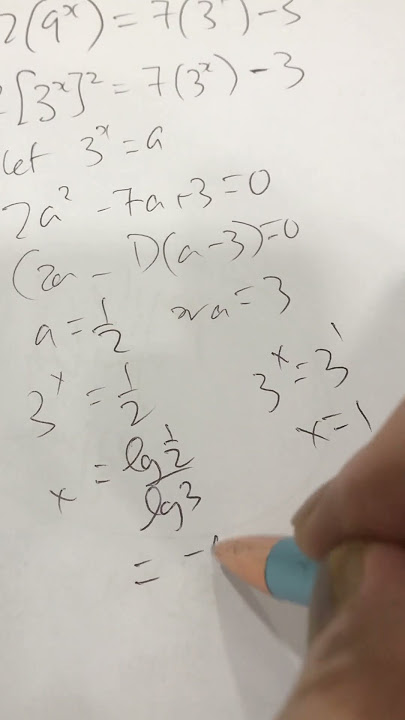 2(9^x) = 7(3^x) - 3
2[3^x]^2 = 7(3^x) - 3
Let 3^x = a
2a^2 - 7a + 3 = 0
(2a - 1)(a - 3) = 0
a = 1/2 a = 3
3^x = 1/2 3^x = 3^1
x = lg 1/2 / lg 3 x = 1
= -